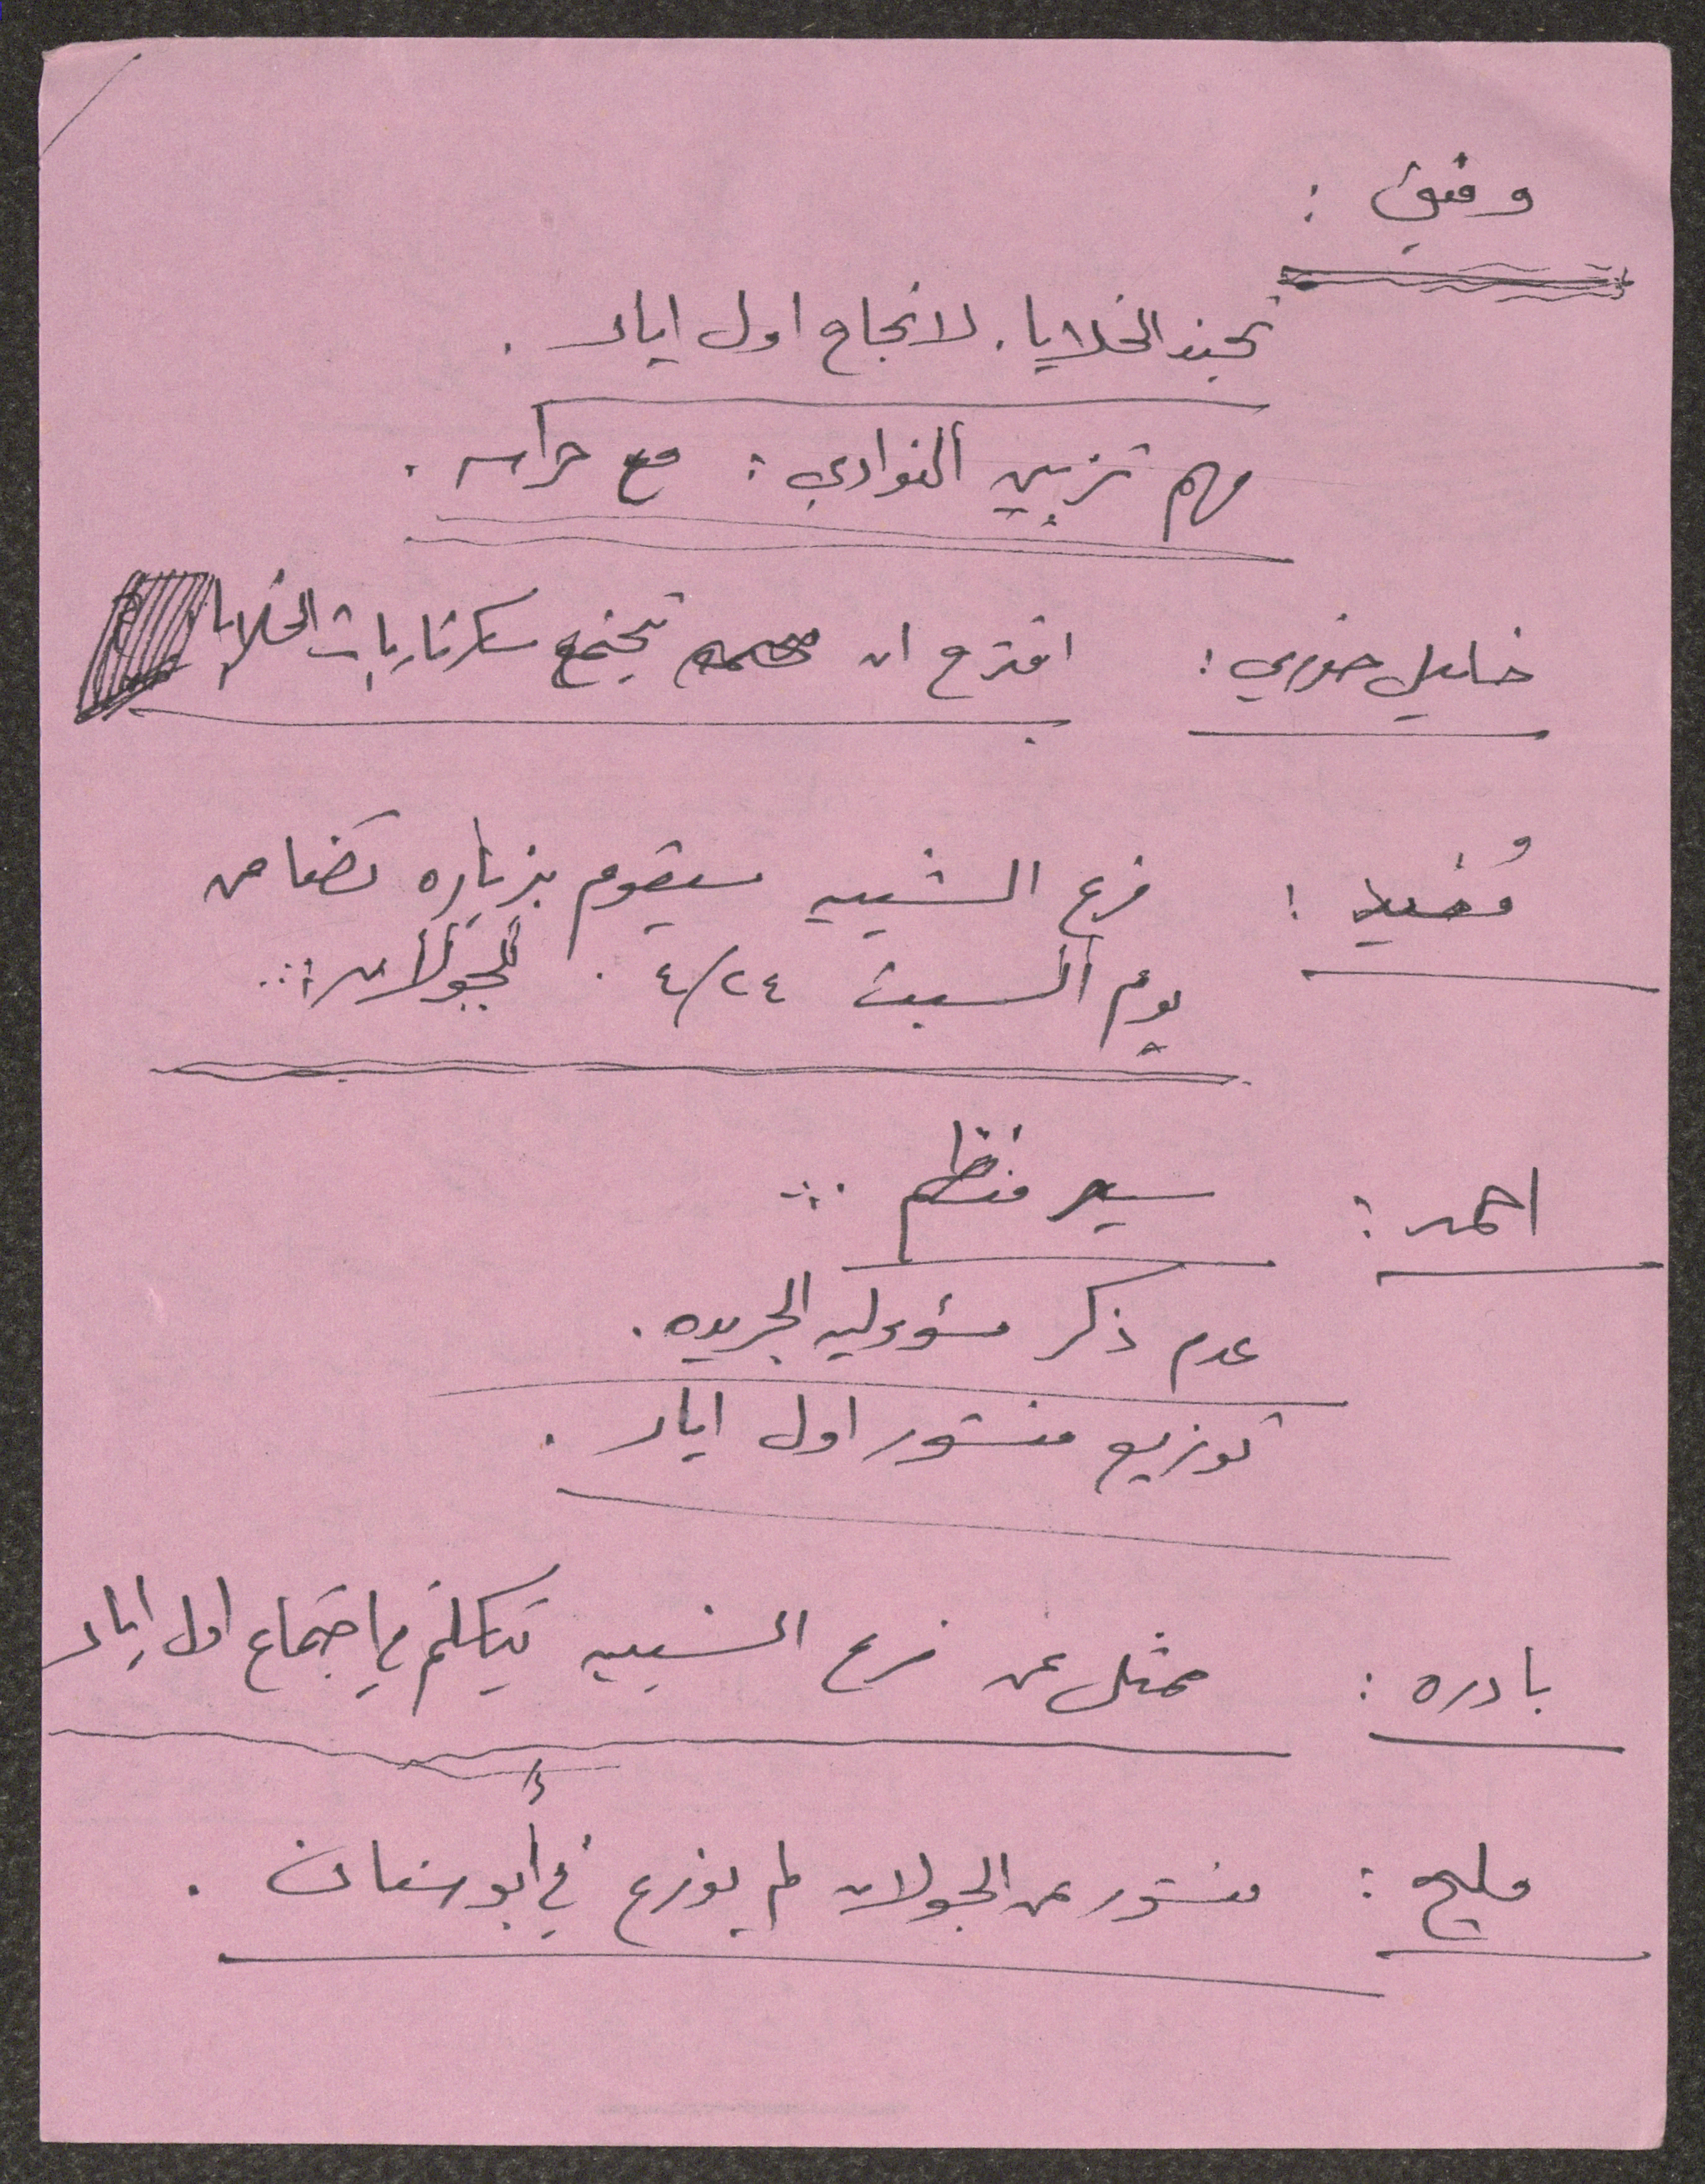 وفيق :
تجند الخلايا. لانجاح اول ايار .
مهم تزيين النوادي : مع حراسه .
خليل خوري : اقترح ان تجتمع سكرتاريات الخلايا
مُفيد : فرع الشبيبه سيقوم بزياره تضامن
يوم السبت ٤/٢٤ . للجولان ...
احمد : سير منظم ...
عدم ذكر مسؤوليه الجريده .
توزيع منشور اول ايار .
بادره : ممثل عن فرع الشبيبه يتكلم في اجتماع اول ايار
مليح : منشور عن الجولان لم يوزع في أبو سنان .